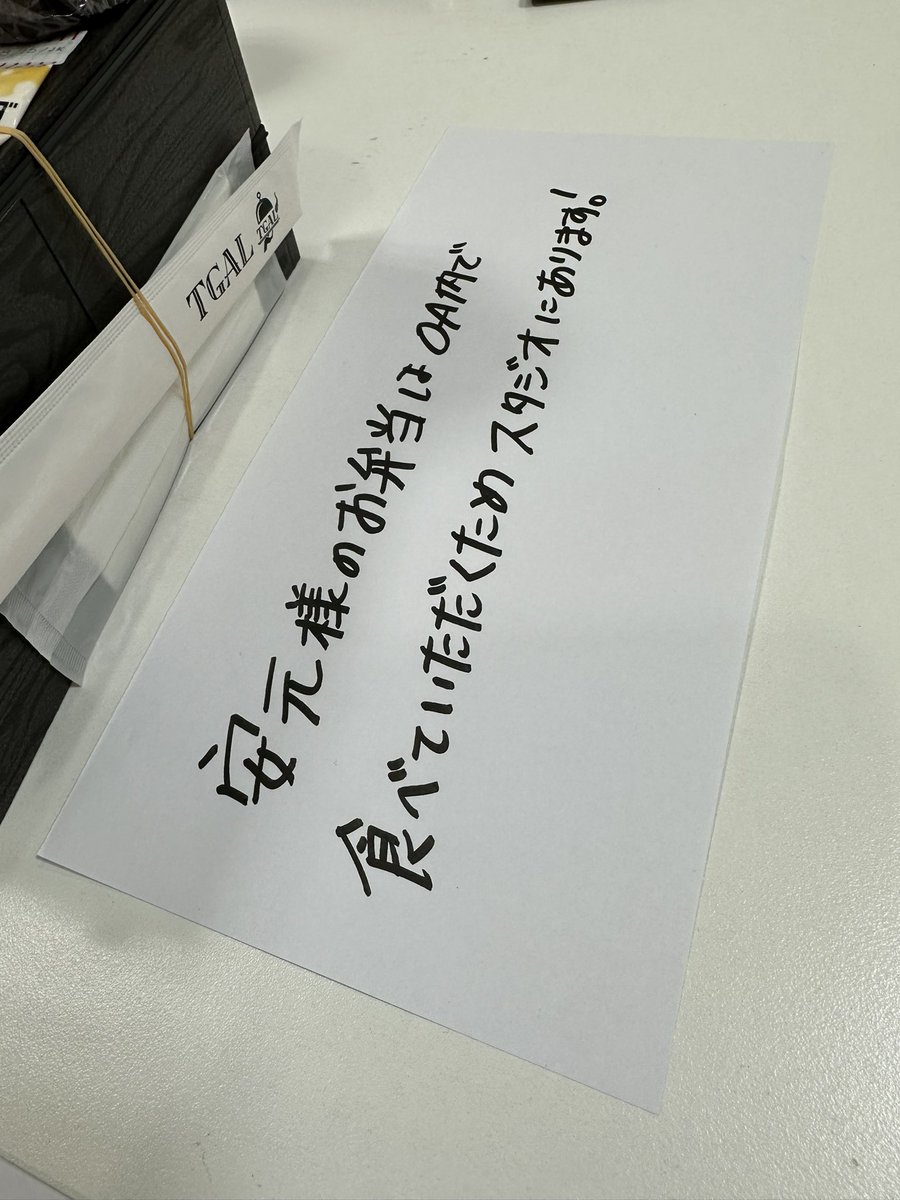 安元様のお弁当はOA内で
食べていただくため スタジオにあります!
TGAL
TGAL